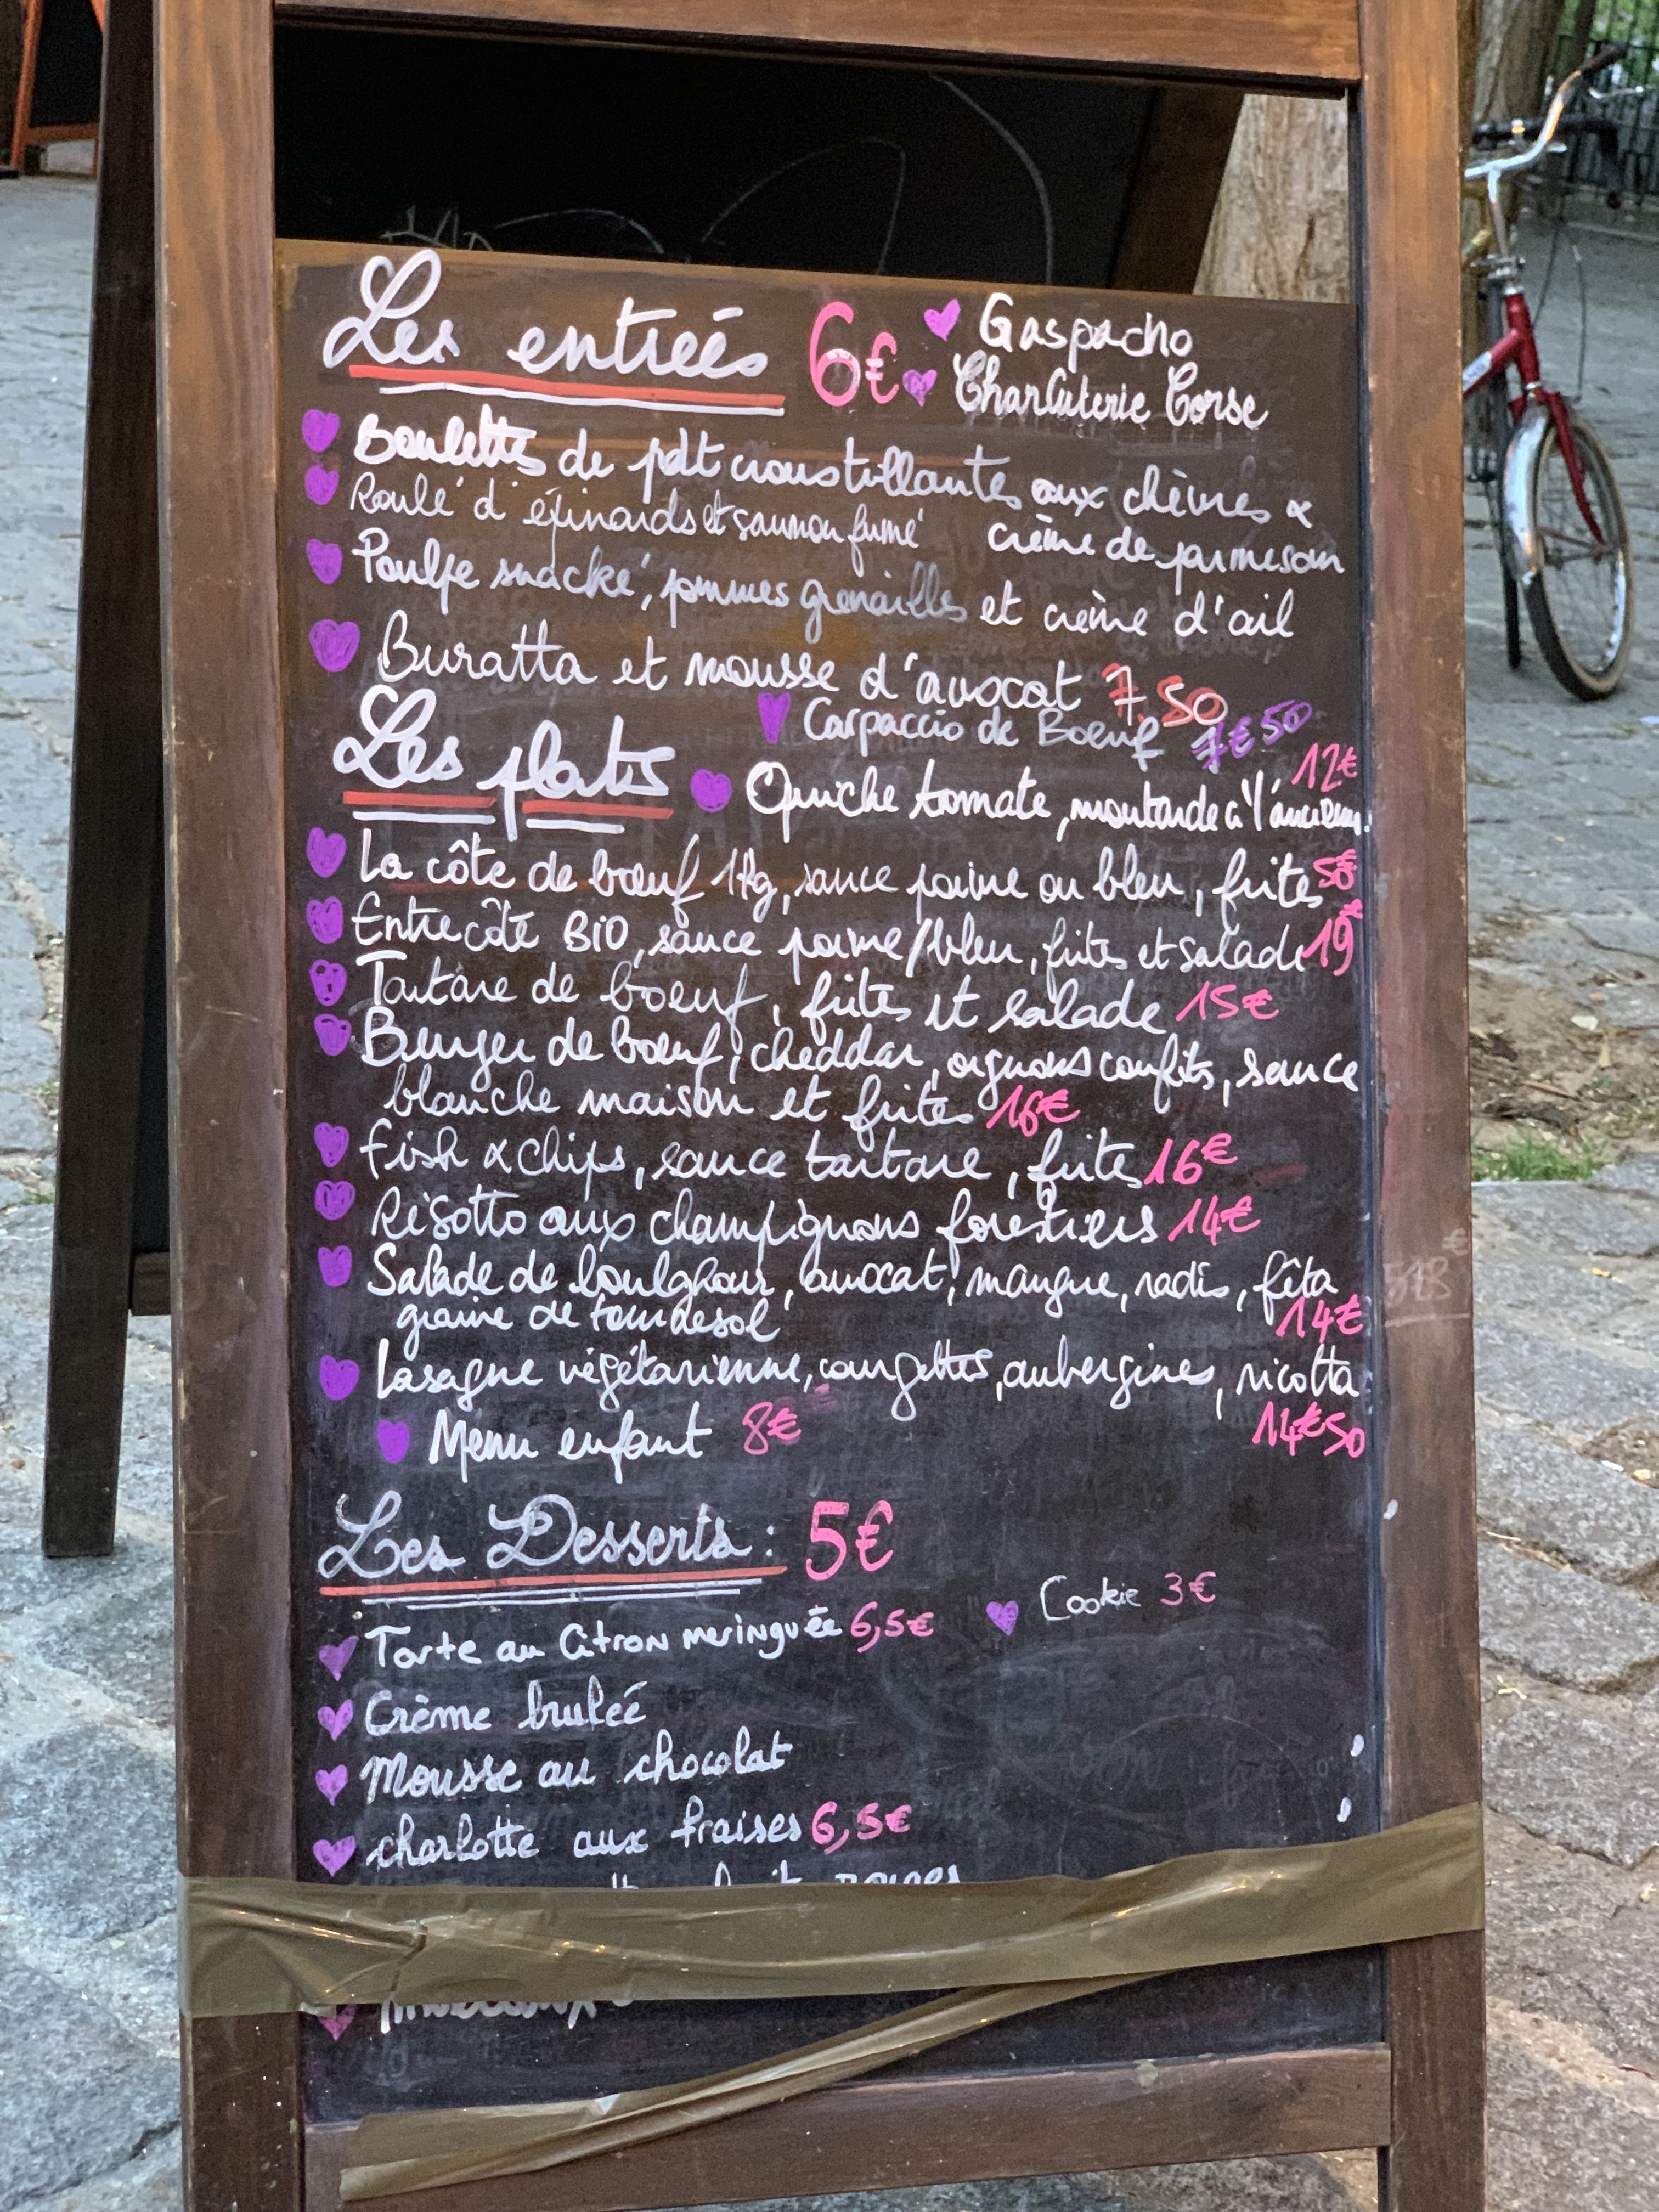 Les entreés 6€ Gaspacho
Charcuterie Corse
Boulettes de pdt croustillantes aux chèvres &
Roulé d'épinards et saumon fumé crème de parmesan
Poulpe snacké, pommes grenailles et crème d'ail
Buratta et mousse d'avocat 7.50
Carpaccio de Boeuf 7€50
Les plats Quiche tomate, moutarde à l'ancienne 12€
La côte de bœuf 1kg, sauce poivre ou bleu, frites
Entrecôte BIO, sauce poivre/bleu, frites et salade 19€
Tartare de boeuf, frites et salade 15€
Burger de bœuf, cheddar, oignons confits, sauce
blanche maison et frites 16€
Fish & chips, sauce tartare, frites 16€
Risotto aux champignons forestiers 14€
Salade de boulghour, avocat, mangue, radis, fêta
graine de tournesol 14€
Lasagne végétarienne, courgettes, aubergines, ricotta
Menu enfant 8€ 14€50
Les Desserts : 5€
Tarte au Citron meringuée 6,5€ Cookie 3€
Crème bruleé
Mousse au chocolat
charlotte aux fraises 6,5€